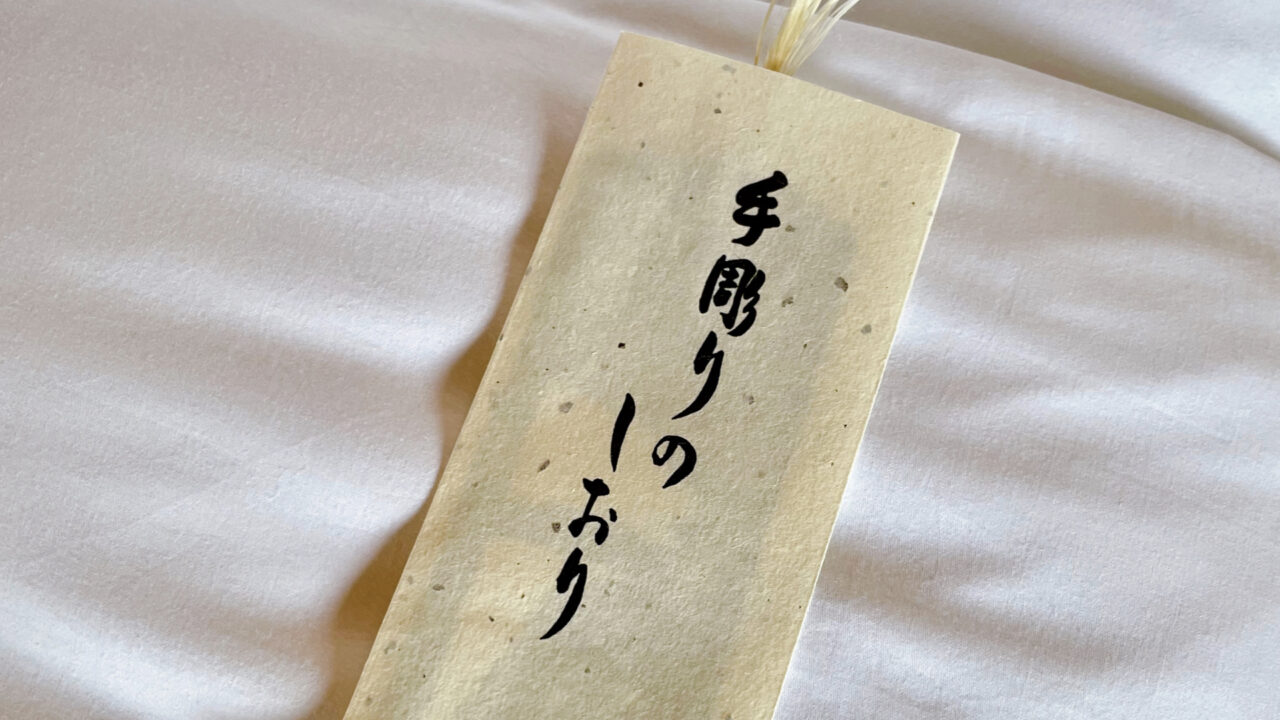 手彫りの
しおり